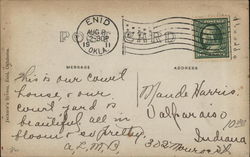 ENID
AUG 8
2-30P
1911
OKLA.
POST CARD
MESSAGE
ADDRESS
This is our court
house, & our
court yard is
beautiful all in
bloom & so pretty.
A.L.M.B
Maude Harris
Valparaiso
Indiana